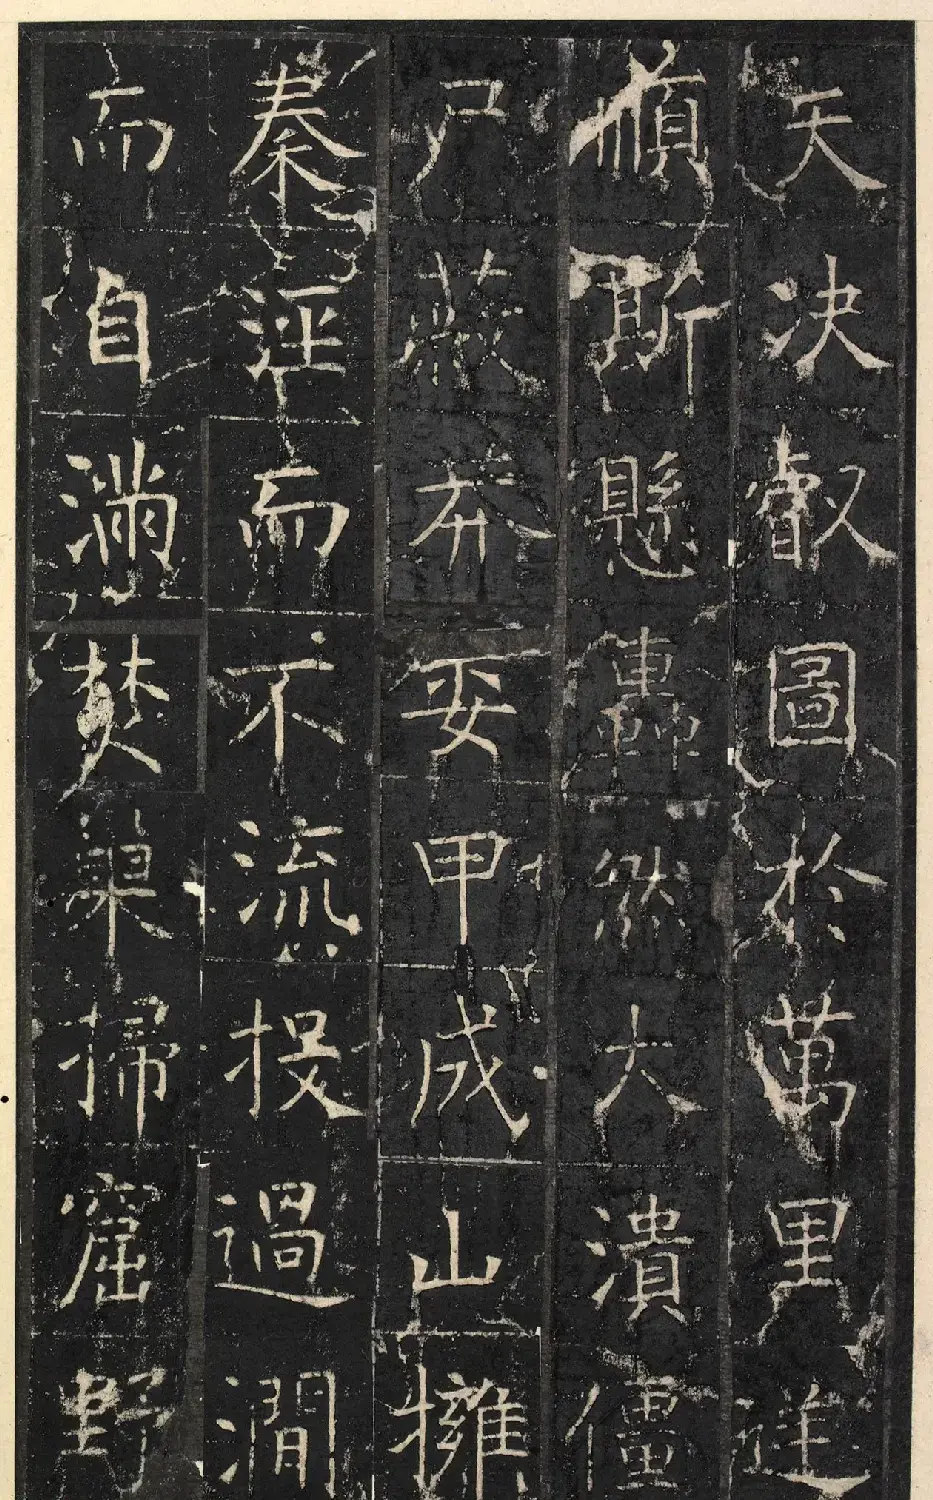 天决叡圖於萬里進
順斯懸轟然大潰僵
尸蔽莽委甲成山擁
秦涇而不流投過澗
而自滿焚巢掃窟野